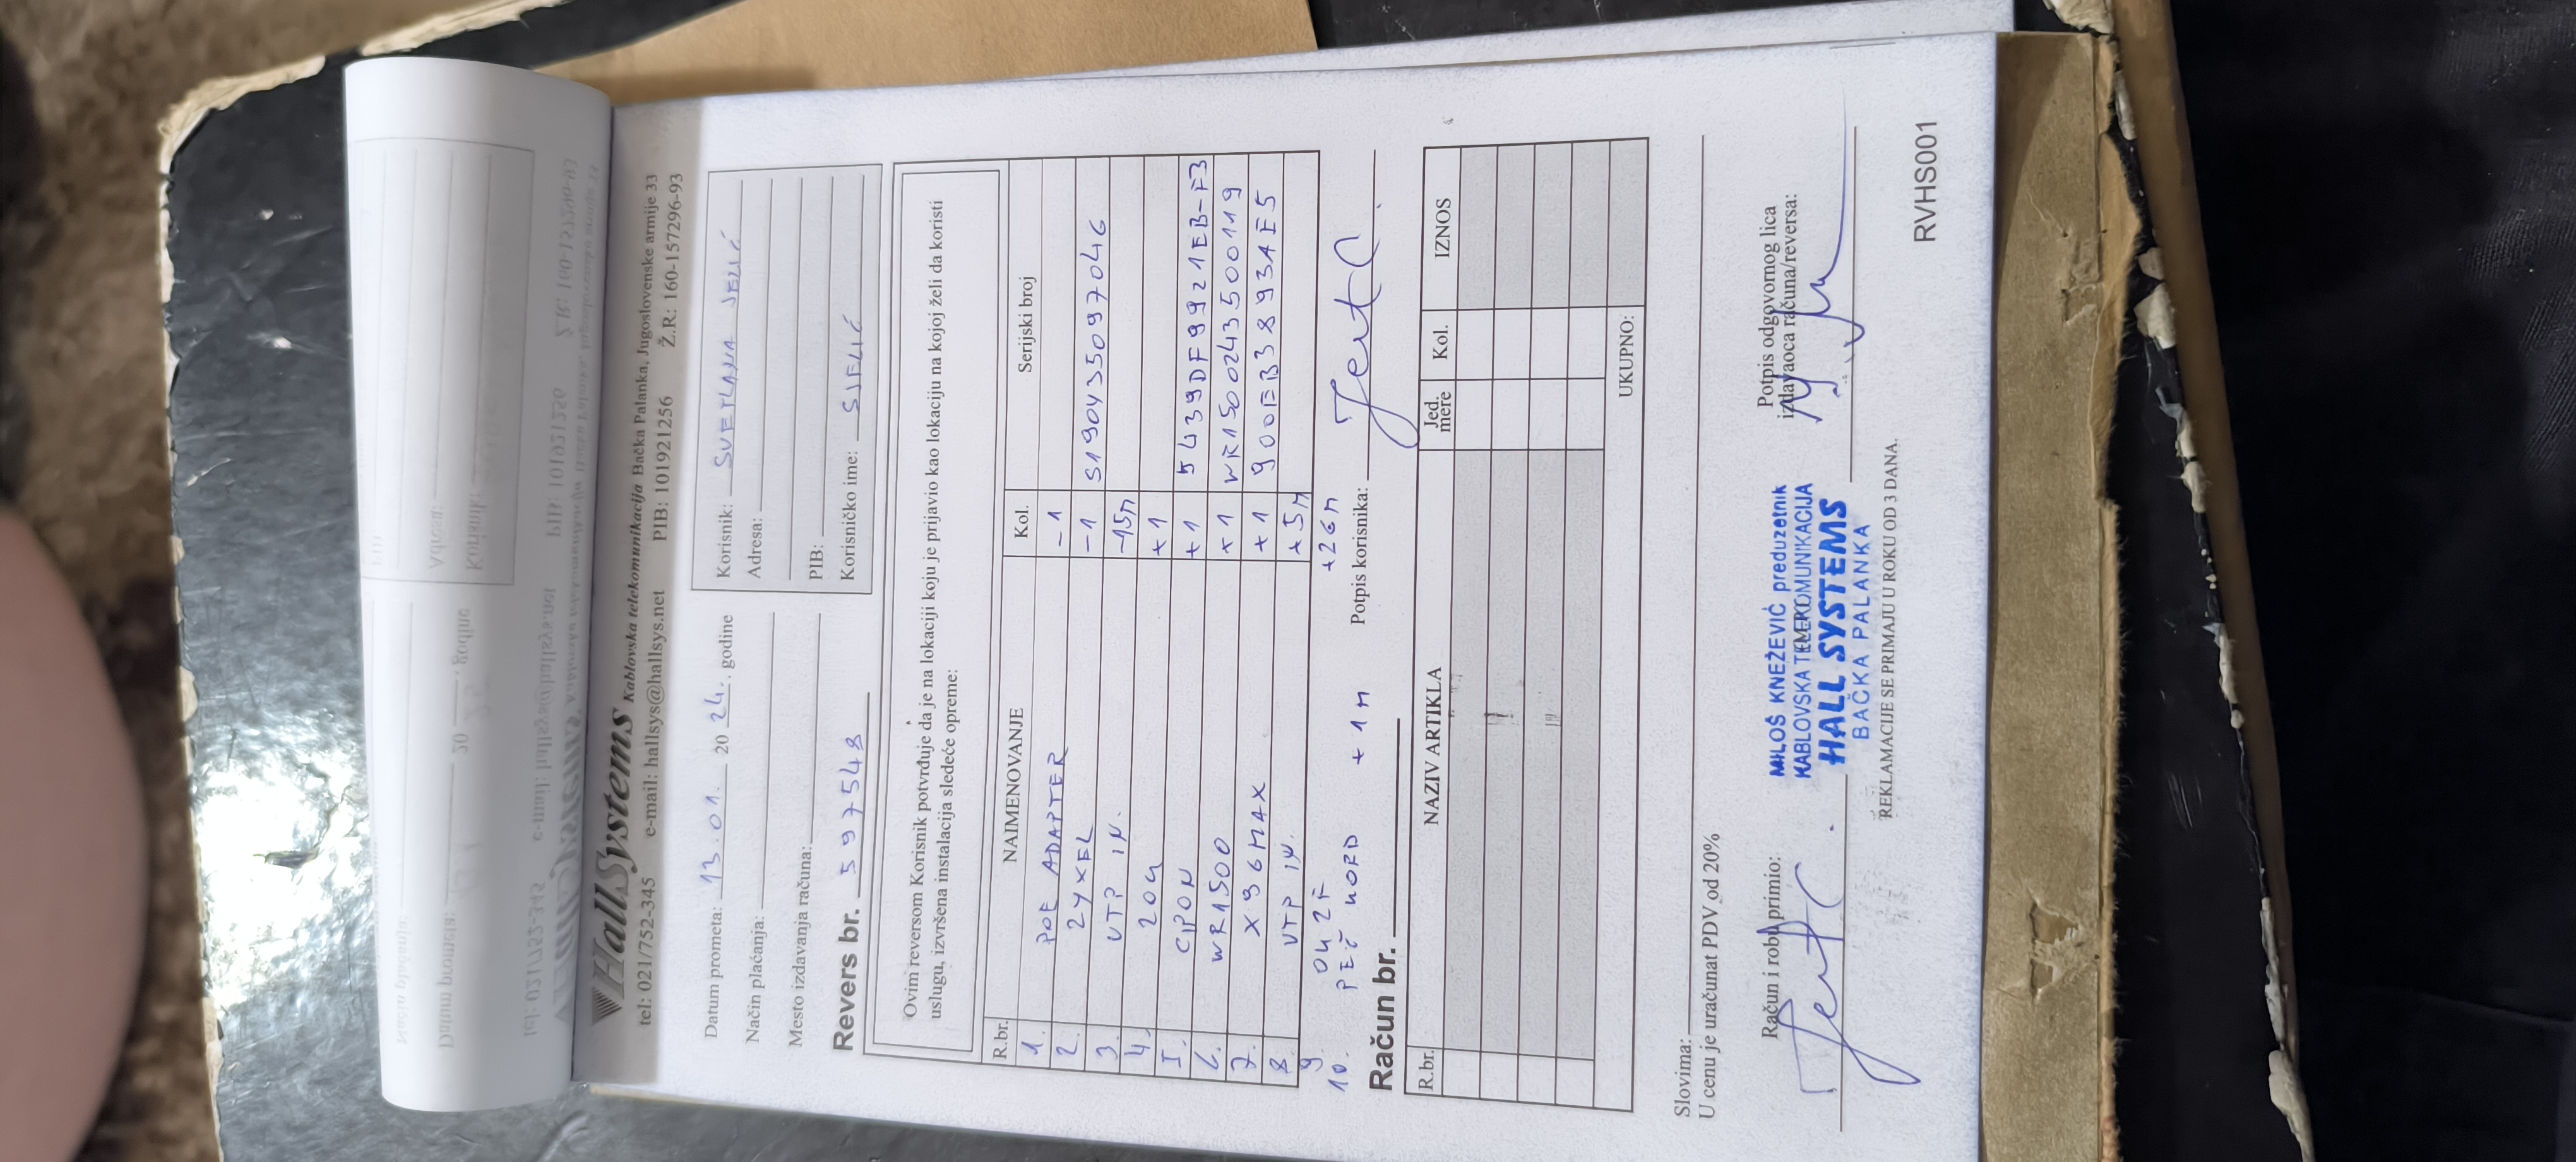 HallSystems Kablovska telekomunikacija Bačka Palanka, Jugoslovenske armije 33
tel: 021/752-345 e-mail: hallsys@hallsys.net PIB: 101921256 Ž.R: 160-157296-93
Datum prometa: 13.01. 20 24. godine
Način plaćanja:
Mesto izdavanja računa:
Korisnik: SVETLANA JELIĆ
Adresa:
PIB:
Korisničko ime: SJELIĆ
Revers br. 597548
Ovim reversom Korisnik potvrđuje da je na lokaciji koju je prijavio kao lokaciju na kojoj želi da koristi
uslugu, izvršena instalacija sledeće opreme:
R.br. NAIMENOVANJE Kol. Serijski broj
1. POE ADAPTER -1
2. ZYXEL -1 S190435097046
3. UTP IN. -15m
4. 204 +1
5. GPON +1 5439DF9921EB-F3
6. WR1500 +1 WR1500243500119
7. X96MAX +1 900EB38934E5
8. UTP IN. +5m
9. 042F +26m
10. PEČ NORD +1m
Potpis korisnika:
Račun br.
R.br. NAZIV ARTIKLA Jed. mere Kol. IZNOS
UKUPNO:
Slovima:
U cenu je uračunat PDV od 20%
Račun i robu primio:
MILOŠ KNEŽEVIĆ preduzetnik
KABLOVSKA TELEKOMUNIKACIJA
HALL SYSTEMS
BAČKA PALANKA
Potpis odgovornog lica
izdavaoca računa/reversa:
REKLAMACIJE SE PRIMAJU U ROKU OD 3 DANA.
RVHS001